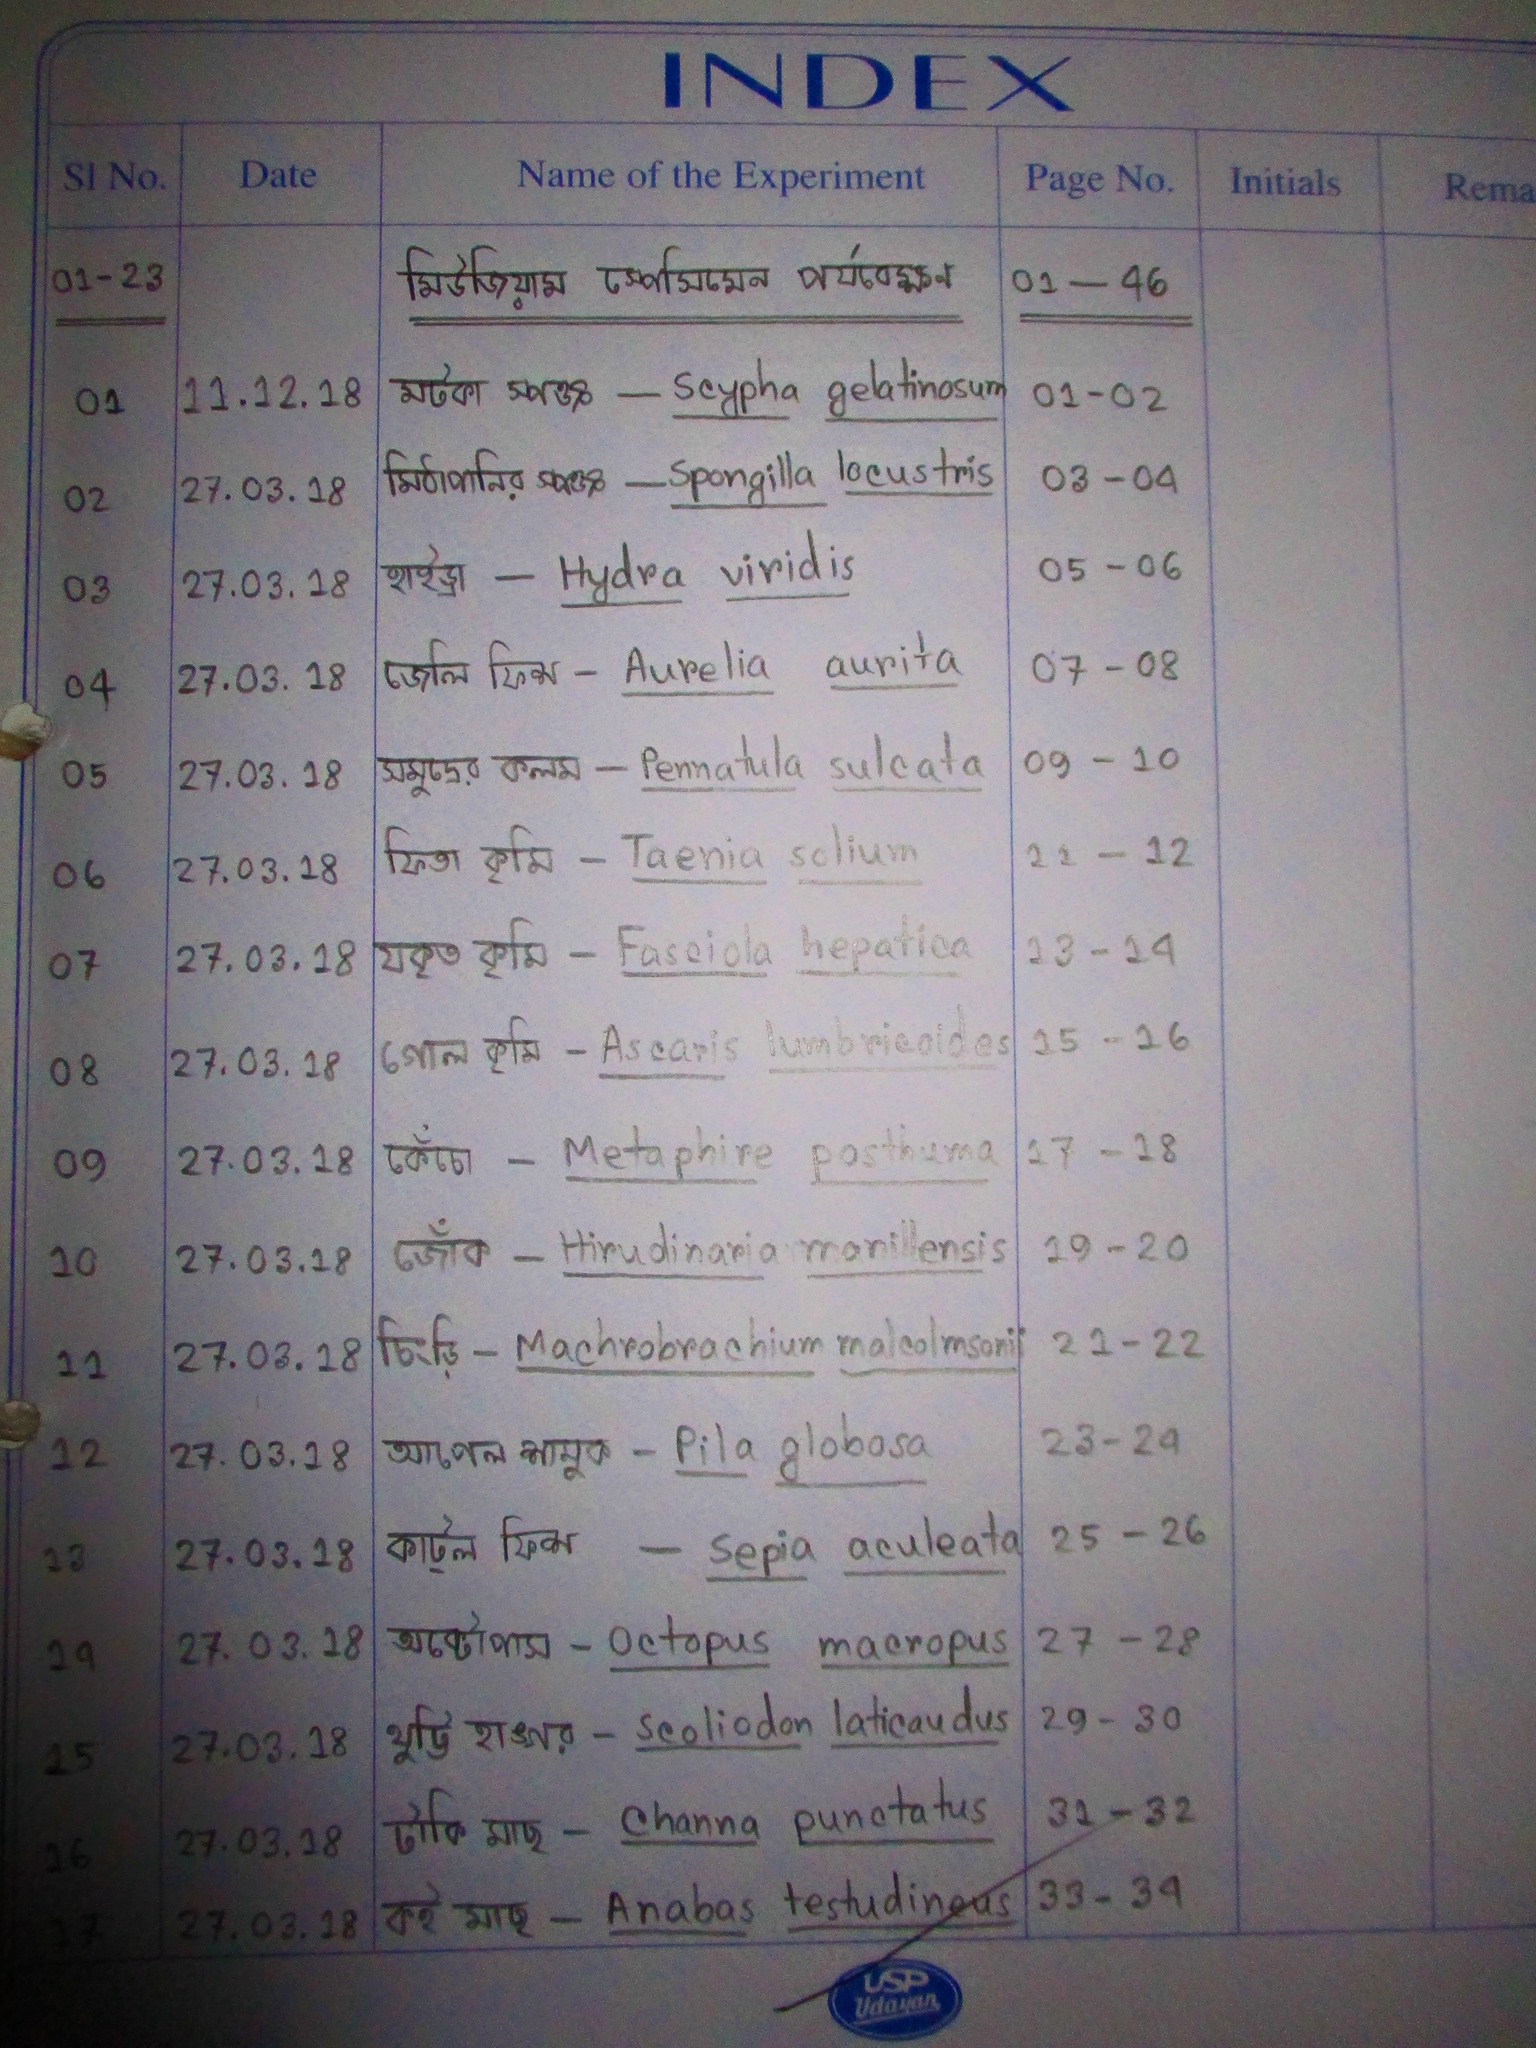 INDEX
Sl No. Date Name of the Experiment Page No. Initials Rema
01-23 মিউজিয়াম স্পেসিমেন পর্যবেক্ষন 01-46
01 11.12.18 মটকা স্পঞ্জ - Scypha gelatinosum 01-02
02 27.03.18 মিঠাপানির স্পঞ্জ - Spongilla locustris 03-04
03 27.03.18 হাইড্রা - Hydra viridis 05-06
04 27.03.18 জেলি ফিশ - Aurelia aurita 07-08
05 27.03.18 সমুদ্রের কলম - Pennatula sulcata 09-10
06 27.03.18 ফিতা কৃমি - Taenia solium 11-12
07 27.03.18 যকৃত কৃমি - Fasciola hepatica 13-14
08 27.03.18 গোল কৃমি - Ascaris lumbricoides 15-16
09 27.03.18 কেঁচো - Metaphire posthuma 17-18
10 27.03.18 জোঁক - Hirudinaria manillensis 19-20
11 27.03.18 চিংড়ি - Machrobrachium malcolmsonii 21-22
12 27.03.18 আপেল শামুক - Pila globosa 23-24
13 27.03.18 কাট্ল ফিশ - Sepia aculeata 25-26
14 27.03.18 অক্টোপাস - Octopus macropus 27-28
15 27.03.18 থুট্টি হাঙ্গর - Scoliodon laticaudus 29-30
16 27.03.18 টাকি মাছ - Channa punctatus 31-32
17 27.03.18 কই মাছ - Anabas testudineus 33-34
USP
Udayan